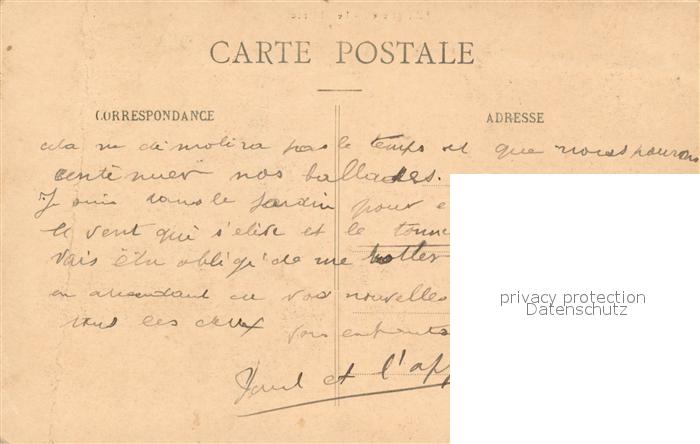 CARTE POSTALE
CORRESPONDANCE
ADRESSE
cela ne démolira pas le temps et que nous pourons
continuer nos ballades.
Je suis dans le jardin pour e
le vent qui s'élève et le tonne
vais être obligé de me
en attendant de vos nouvelles
tous les deux vos enfants
et l'app
privacy protection
Datenschutz